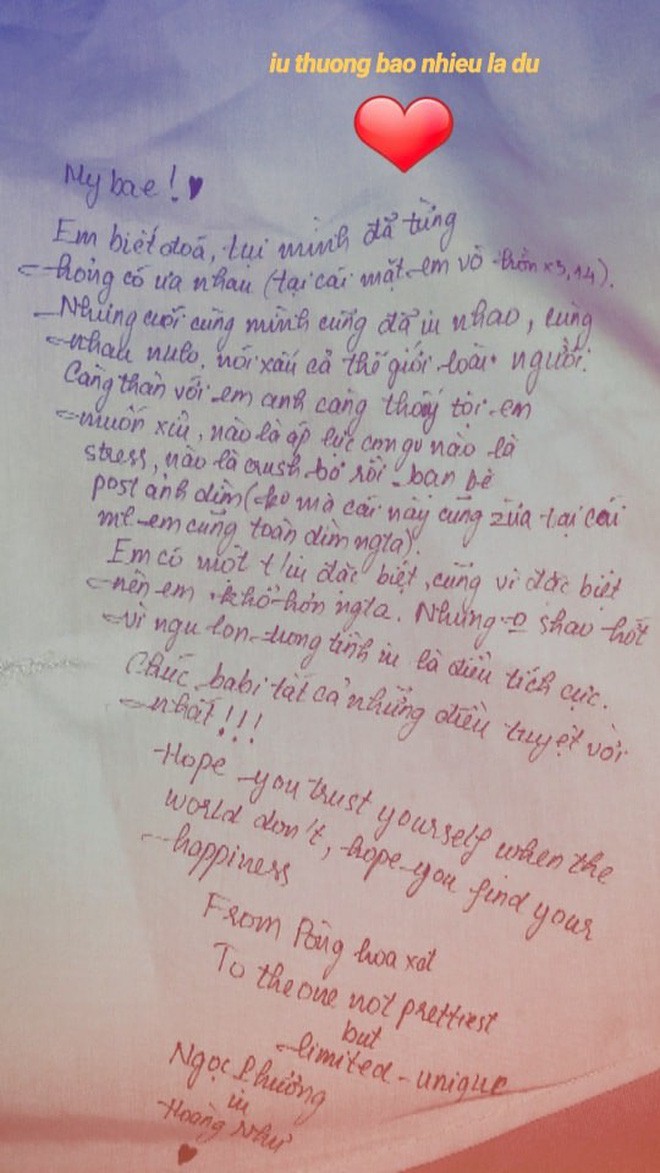 iu thuong bao nhieu la du
My bae! ♥
Em biết đoá, tụi mình đã từng
hỏng có ưa nhau (tại cái mặt em vô hồn x3,14).
Nhưng cuối cùng mình cũng đã iu nhao, cùng
nhau nuto, nói xấu cả thế giới loài người.
Càng thân với em anh càng thấy tội em
muốn xỉu, nào là áp lực con gu nào là
stress, nào là crush bơ rồi bạn bè
post ảnh dìm (ko mà cái này cũng zừa tại cái
mt em cũng toàn dìm ngta).
Em có một t iu đặc biệt, cũng vì đặc biệt
nên em khổ hơn ngta. Nhưng o shao hết
vì ngu lon trong tình iu là điều tích cực.
Chúc babi tất cả những điều tuyệt vời
nhất!!!
Hope you trust yourself when the
world don't, hope you find your
happiness
From Pông hoa xot
To the one not prettiest
but
limited - unique
Ngọc Phượng
iu
Hoàng Như
♥